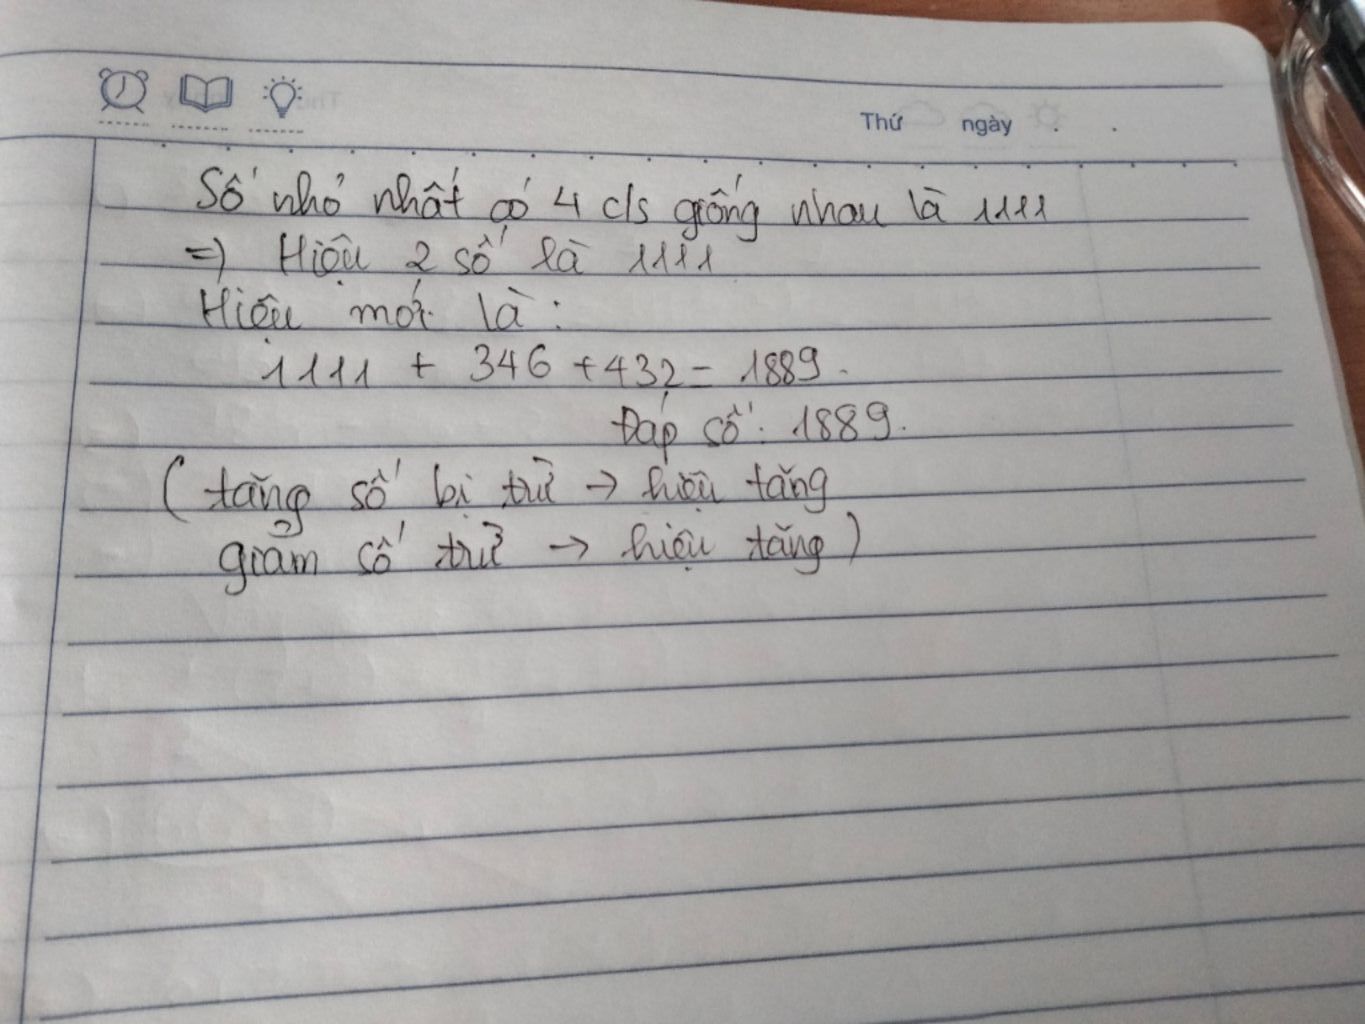 Thứ ngày
Số nhỏ nhất có 4 c/s giống nhau là 1111
=) Hiệu 2 số là 1111
Hiệu mới là:
1111 + 346 + 432 = 1889.
Đáp số: 1889.
( tăng số bị trừ → hiệu tăng
giảm số trừ → hiệu tăng )